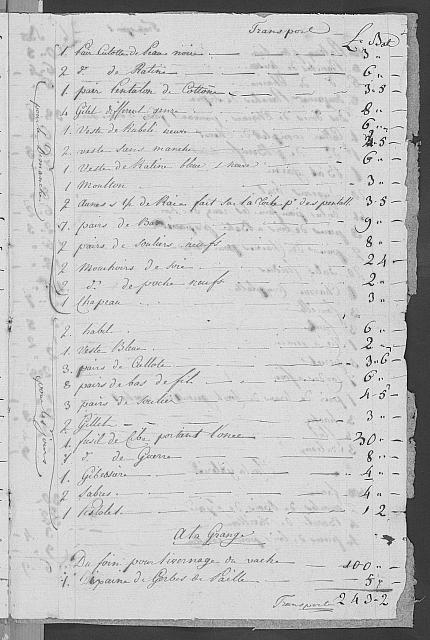 Transport
L. Bat
1 Pair Culotte de Peau noire 3 "
2 d.° de Ratine 6 "
1 pair Pentalon de Cottonne 3 - 5
4 Gilet different genre 8 "
1 Veste de neuve 6 "
2 veste sans manche 4 5
1 Veste de Ratine bleue neuve 6 "
1 Moulton 3 "
2 aunes 1/2 de fait sur la p.r des pentall 3 5
7. pairs de Bas 9 "
2 pairs de Souliers neufs 8 "
2 Mouchoirs de soie 2 4
2 d.° de poche neufs 2 "
1 Chapeau 3 "
pour le Dimanche
2. habit 6 "
1. Veste Bleue 2 "
3. pairs de Cullote 3 - 6
8 pairs de bas de fil 6 "
3 pairs de Souliers 4 - 5
2. Gillet 3 "
1. fusil de portant l'once 30 "
1 d.° de Guerre 8 "
1. Gibessiere 4 "
2 Sabres 4 "
1 Pistolet 1 2
pour les jours
A la Grange
Du foin pour l'ivernage du vache 100 "
1. de Gerbes de Paille 5 "
Transport 243 - 2